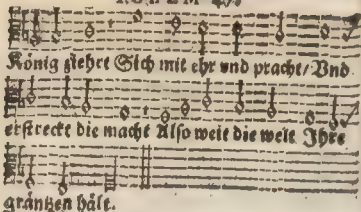 König ziehet Sich mit ehr vnd pracht/Vnd
erstreckt die macht Also weit die welt Ihre
gräntzen hält.